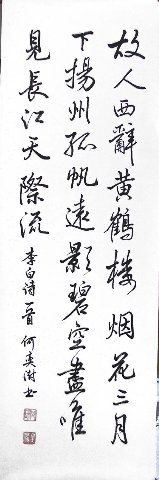 故人西辭黄鶴楼烟花三月
下揚州孤帆遠影碧空盡唯
見長江天際流 李白诗一首 何奕澍书